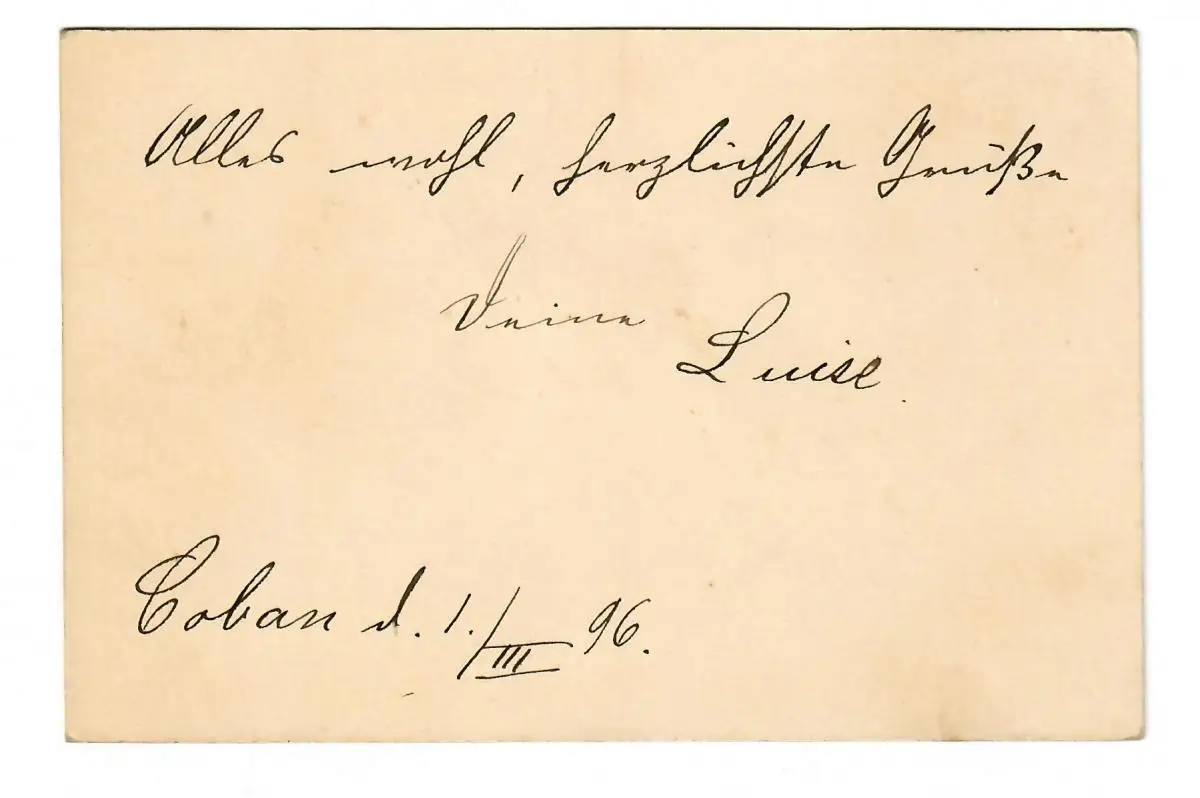 Alles wohl, herzlichste Grüße
Deine
Luise.
Coban d. 1./III 96.